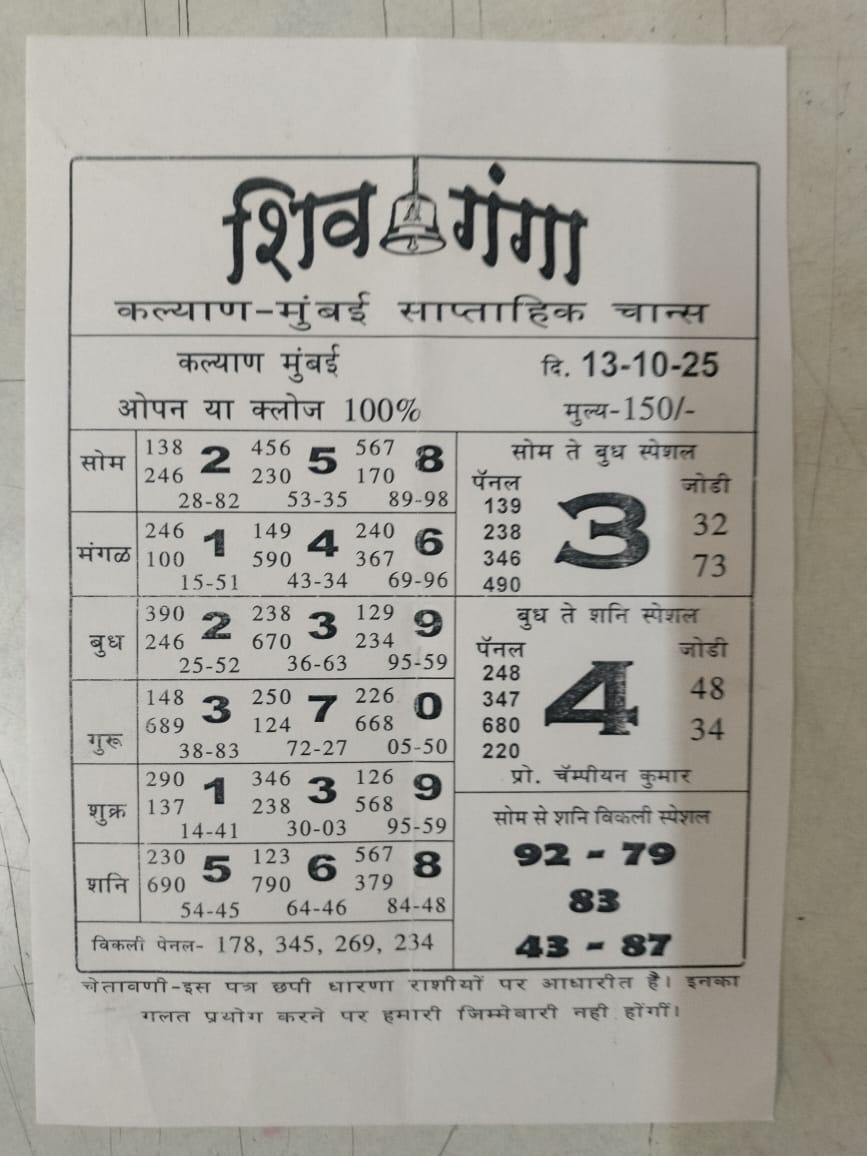 शिव गंगा
कल्याण-मुंबई साप्ताहिक चान्स
कल्याण मुंबई
ओपन या क्लोज 100%
दि. 13-10-25
मुल्य-150/-
सोम
138 2 456 5 567 8
246 230 170
28-82 53-35 89-98
मंगळ
246 1 149 4 240 6
100 590 367
15-51 43-34 69-96
बुध
390 2 238 3 129 9
246 670 234
25-52 36-63 95-59
गुरू
148 3 250 7 226 0
689 124 668
38-83 72-27 05-50
शुक्र
290 1 346 3 126 9
137 238 568
14-41 30-03 95-59
शनि
230 5 123 6 567 8
690 790 379
54-45 64-46 84-48
विकली पेनल- 178, 345, 269, 234
सोम ते बुध स्पेशल
पॅनल जोडी
139
238
346
490
3
32
73
बुध ते शनि स्पेशल
पॅनल जोडी
248
347
680
220
4
48
34
प्रो. चॅम्पीयन कुमार
सोम से शनि विकली स्पेशल
92 - 79
83
43 - 87
चेतावणी-इस पत्र छपी धारणा राशीयों पर आधारीत है। इनका
गलत प्रयोग करने पर हमारी जिम्मेवारी नही होंगीं।